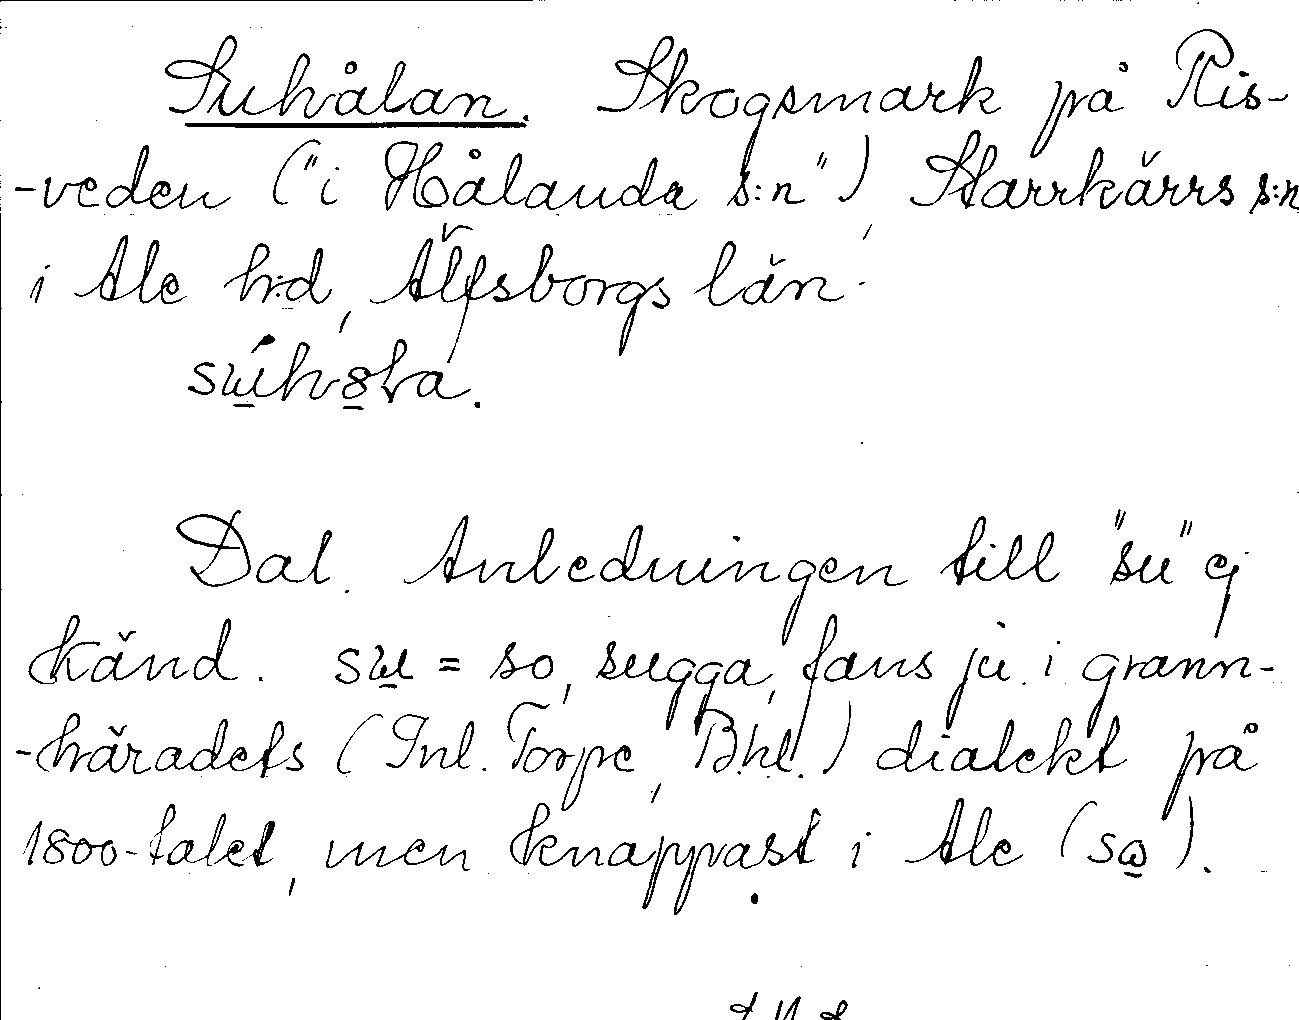 Suhålan. Skogsmark på Ris-
-veden ("i Hålanda s:n") Starrkärrs s:n
i Ale h:d, Älfsborgs län.
Dal. Anledningen till "su" ej
känd. su = so, sugga, fans ju i grann-
-häradets (Inl. Torpe, Bhl.) dialekt på
1800-talet, men knappast i Ale (sω).